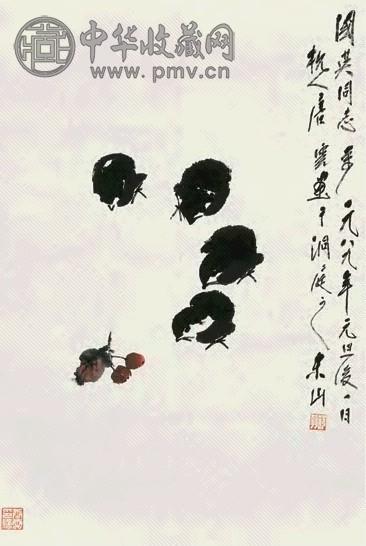 中华收藏网
www.pmv.cn
國英同志 一九八九年元旦後一日
杭人唐雲畫于洞庭之東山